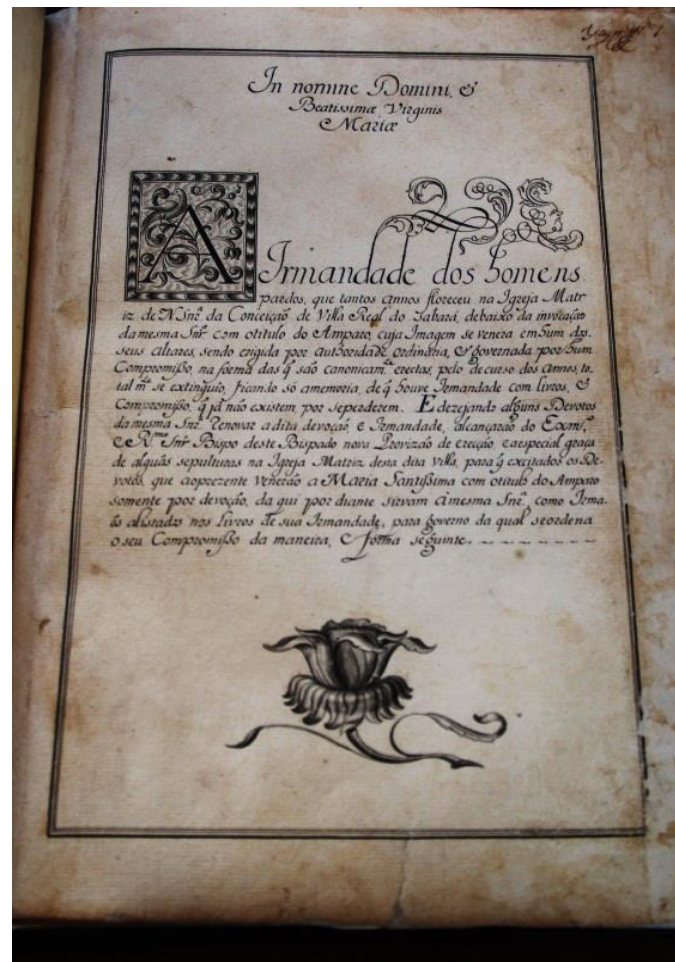 In nomine Domini, &
Beatissimæ Virginis
Mariæ
A Irmandade dos homens
pardos, que tantos annos floreceu na Igreja Matr
iz de N. Snr.ª da Conceiçaõ de Villa Real do Sabará, debaixo da invocaçaõ
da mesma Snr.ª com otitulo do Amparo, cuja Imagem se venera em hum dos
seus altares, sendo erigida por authoridade ordinaria, & governada por hum
Compromißo, na forma das q̃ saõ canonicam.te erectas, pelo decurso dos annos, to
tal m.te se extinguio, ficando só amemoria, de q̃ houve Irmandade com livros, &
Compromißo, q̃ já naõ existem, por seperderem. E dezejando alguns Devotos
da mesma Snr.ª renovar a dita devoçaõ, e Irmandade, alcançaraõ do Exm.º
& R.mo Snr. Bispo deste Bispado nova Provizaõ de erecçaõ, e aespecial graça
de alguãs sepulturas na Igreja Matriz desta dita Villa, para q̃ excitados os De-
votos, que aoprezente veneraõ a Maria Santißima com otitulo do Amparo
somente por devoçaõ, da qui por diante sirvam âmesma Snr.ª como Irma-
õs alistados nos Livros de sua Irmandade, para governo da qual seordena
o seu Compromißo da maneira, e forma seguinte